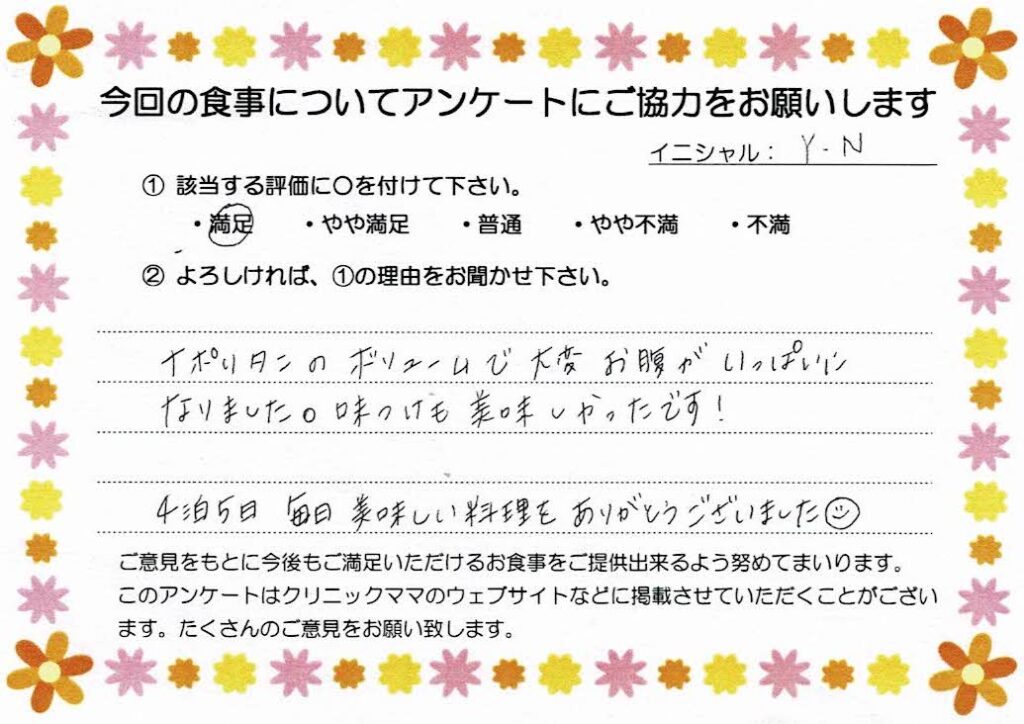 今回の食事についてアンケートにご協力をお願いします
イニシャル： Y.N
① 該当する評価に○を付けて下さい。
・満足 ・やや満足 ・普通 ・やや不満 ・不満
② よろしければ、①の理由をお聞かせ下さい。
ナポリタンの ボリュームで 大変 お腹が いっぱいに
なりました。味つけも 美味しかったです！
4泊5日 毎日 美味しい料理を ありがとうございました
ご意見をもとに今後もご満足いただけるお食事をご提供出来るよう努めてまいります。
このアンケートはクリニックママのウェブサイトなどに掲載させていただくことがござい
ます。たくさんのご意見をお願い致します。